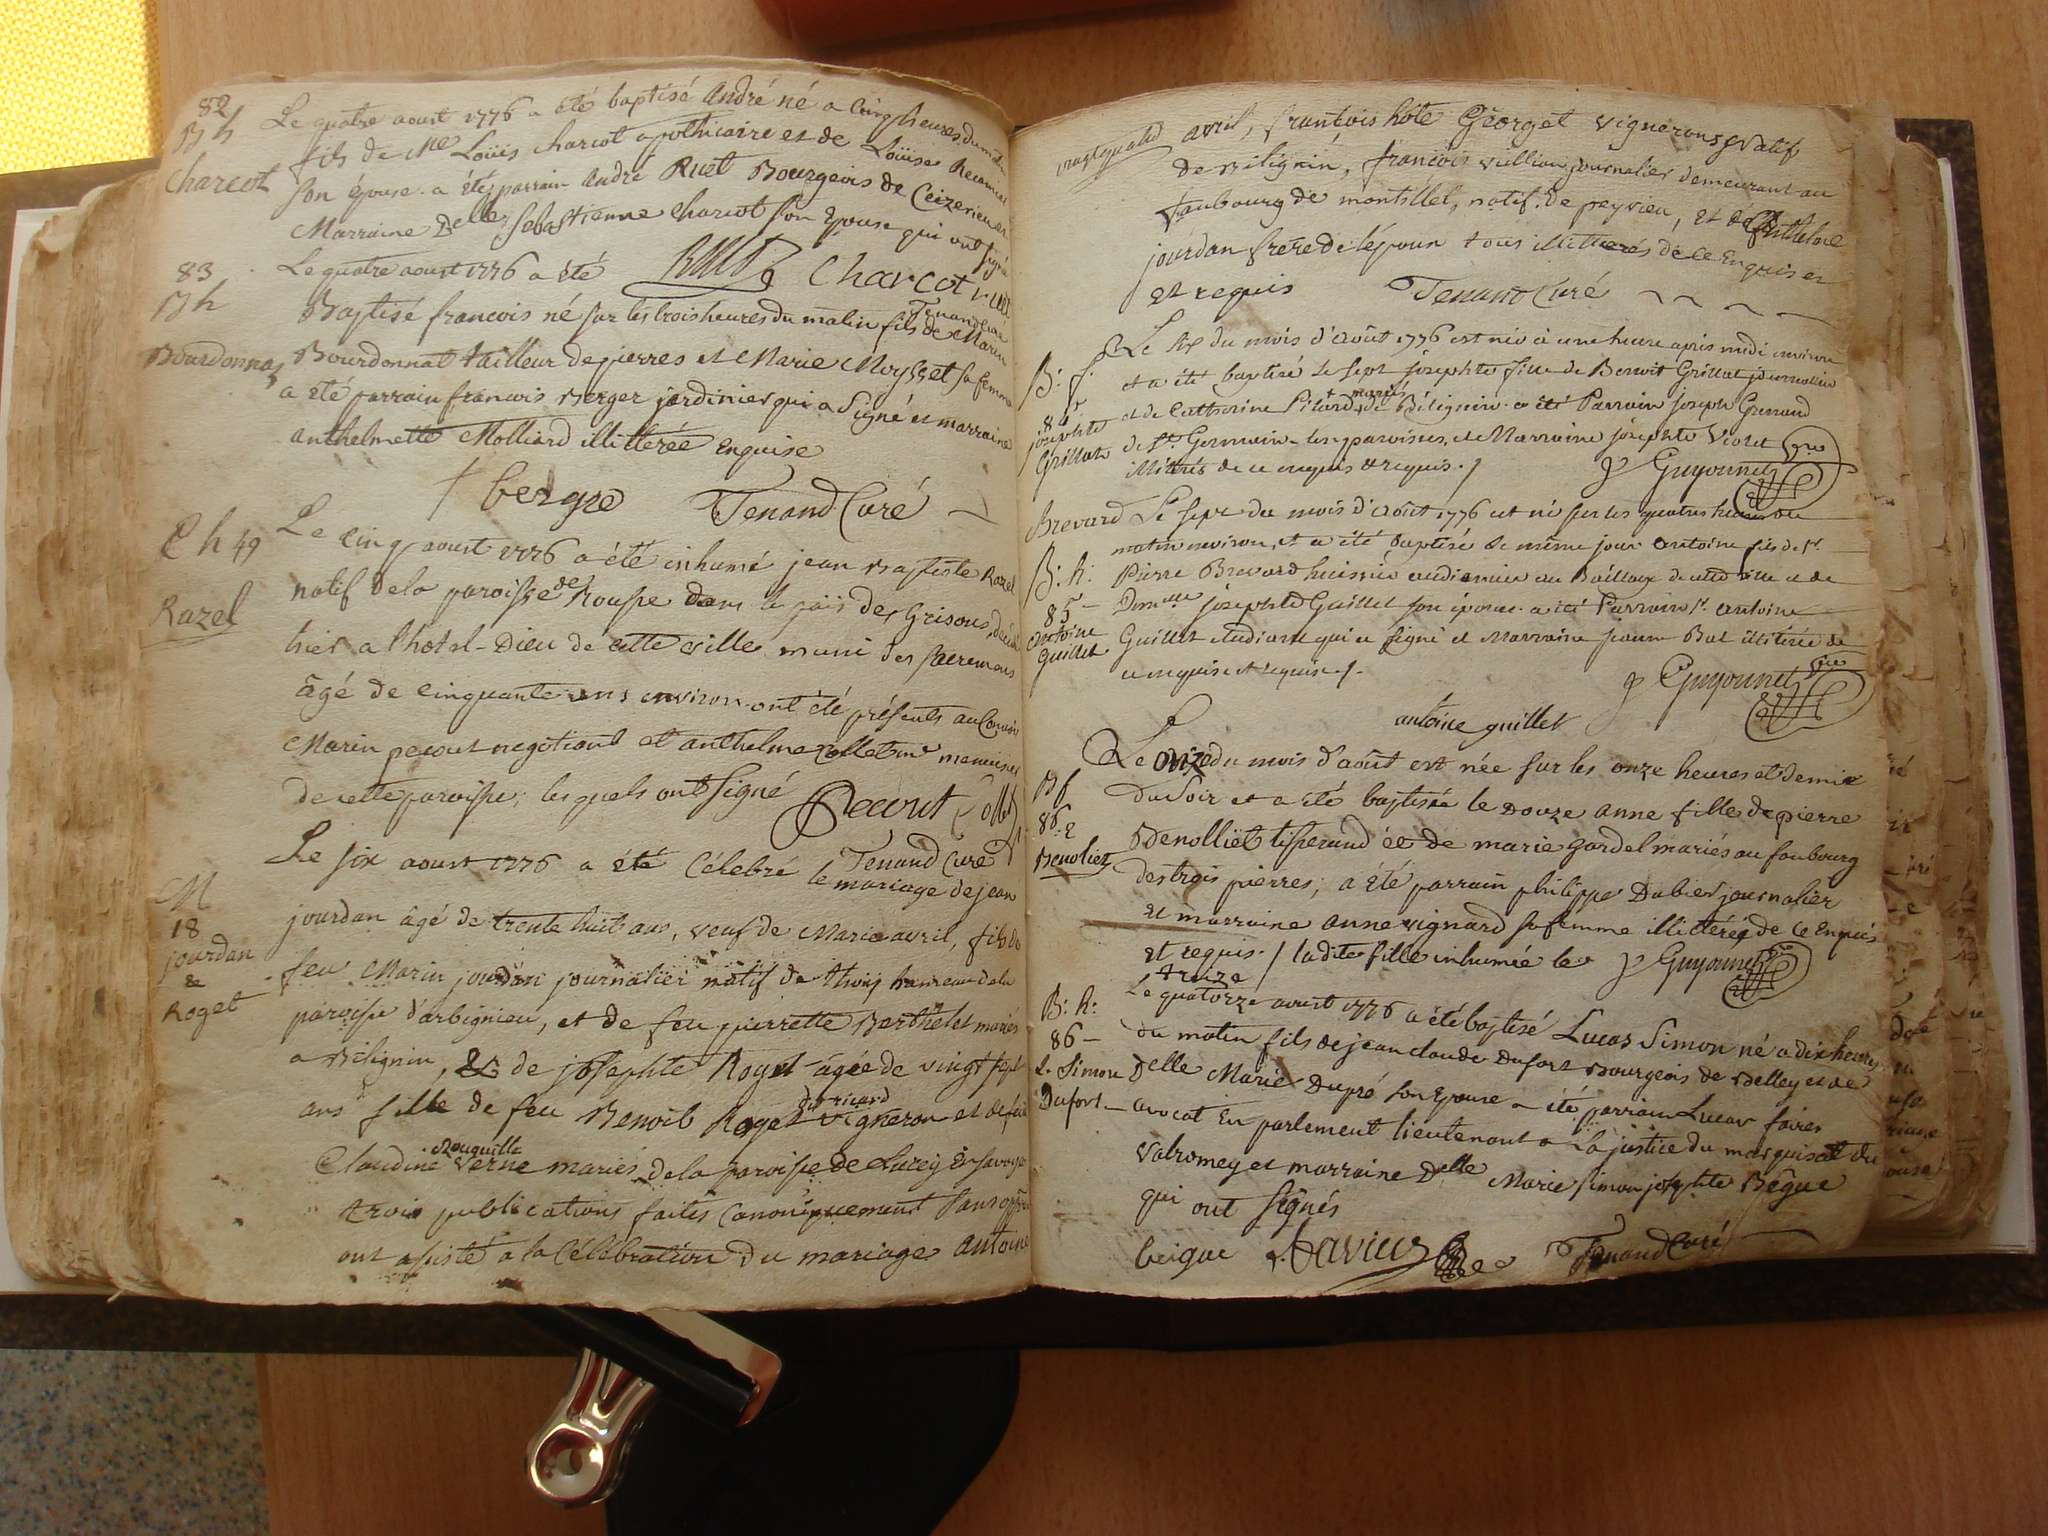 82
B h
Charcot
Le quatre aoust 1776 a été baptisé André né a cinq heures du matin
fils de Me Loüis Charcot apothicaire et de Loüise Recamier
son épouse a été parrain André Ruet Bourgeois de Ceizerieu et
Marraine Delle Sebastienne Charcot son Epouse qui ont signé
Ruet Charcot ruet
Tenand Curé
83
B h
Bourdonnat
Le quatre aoust 1776 a été
Baptisé francois né sur les trois heures du matin fils de Marin
Bourdonnat tailleur de pierres et Marie Moysset sa femme
a été parrain francois Berger jardinier qui a Signé et marraine
anthelmette Molliard illittérée Enquise
† bergre Tenand Curé
E h 49
Razel
Le cinq aoust 1776 a été inhumé jean Baptiste Razel
natif de la paroisse de Rousse dans le païs des Grisons, décédé
hier a l'hotel-Dieu de cette ville muni des sacremens
âgé de cinquante ans environ ont été présents au Convoi
Marin pecout negotiant et anthelme Collet me menuisier
de cette paroisse, lesquels ont signé Pecout Collet
Tenand Curé
M
18
jourdan
&
Roget
Le six aoust 1776 a été Célebré le mariage de jean
jourdan âgé de trente huit ans, veuf de Marie avril, fils de
feu Marin jourdan journalier natif de thoij hameau de la
paroisse d'arbignieu, et de feu pierrette Barthelet mariés
a Bilignin, & de josephte Roget âgée de vingt sept
ans fille de feu Benoit Roget dit ricard vigneron et de feüe
Claudine Rouquille Verne mariés de la paroisse de Lucey En Savoye
trois publications faites Canoniquement Sans opposi
ont assisté a la Célébration du mariage Antoine
avril, francois hôte Georget vignerons natifs
de Bilignin, françois vullion journalier demeurant au
faubourg de montillet, natif de peyrieu, et de Anthelme
jourdan frere de l'époux tous illitterés de ce Enquis et
et requis Tenand Curé
B: f.
84
josephte
Grillat
Le six du mois d'Août 1776 est née à une heure après midi environ
et a été baptisée le sept josephte fille de Benoit Grillat journalier
et de Catherine Pitard mariés de Bélignin a été Parrain joseph Grenand
de St. Germain-les-paroisses, et Marraine josephte Violet
illitérés de ce enquis & requis./ Guyonnet
Brevard
B: h:
85
antoine
Guillet
Le sept du mois d'Août 1776 est né sur les quatre heures du
matin environ, et a été baptisé le même jour Antoine fils de Sr.
Pierre Brevard huissier audiencier au Bailliage de cette ville et de
Demlle josephte Guillet son épouse a été Parrain Sr. Antoine
Guillet etudiant qui a signé et Marraine jeanne Bal illitérée de
ce enquise et requise./.
Guyonnet
antoine guillet
B f
86.2
Benoliet
Le onze du mois d'août est née sur les onze heures et demie
du soir et a été baptisée le Douze anne fille de pierre
Benolliet tisserand et de marie gardel mariés au faubourg
des trois pierres, a été parrain philippe Dubier journalier
et marraine anne vignard sa femme illittérés de ce Enquis
et requis./ ladite fille inhumée le Guyonnet
treize
B: h:
86
L. Simon
Dufort
Le quatorze aoust 1776 a été baptisé Lucas Simon né a dix heures
du matin fils de jean claude Dufort Bourgeois de Belley et de
Delle Marie Dupré son Epouse a été parrain Lucas
avocat En parlement lieutenant a La justice du marquisat du
Valromey et marraine Delle Marie simon josephte Bêgue
qui ont signés
beigue Tenand Curé